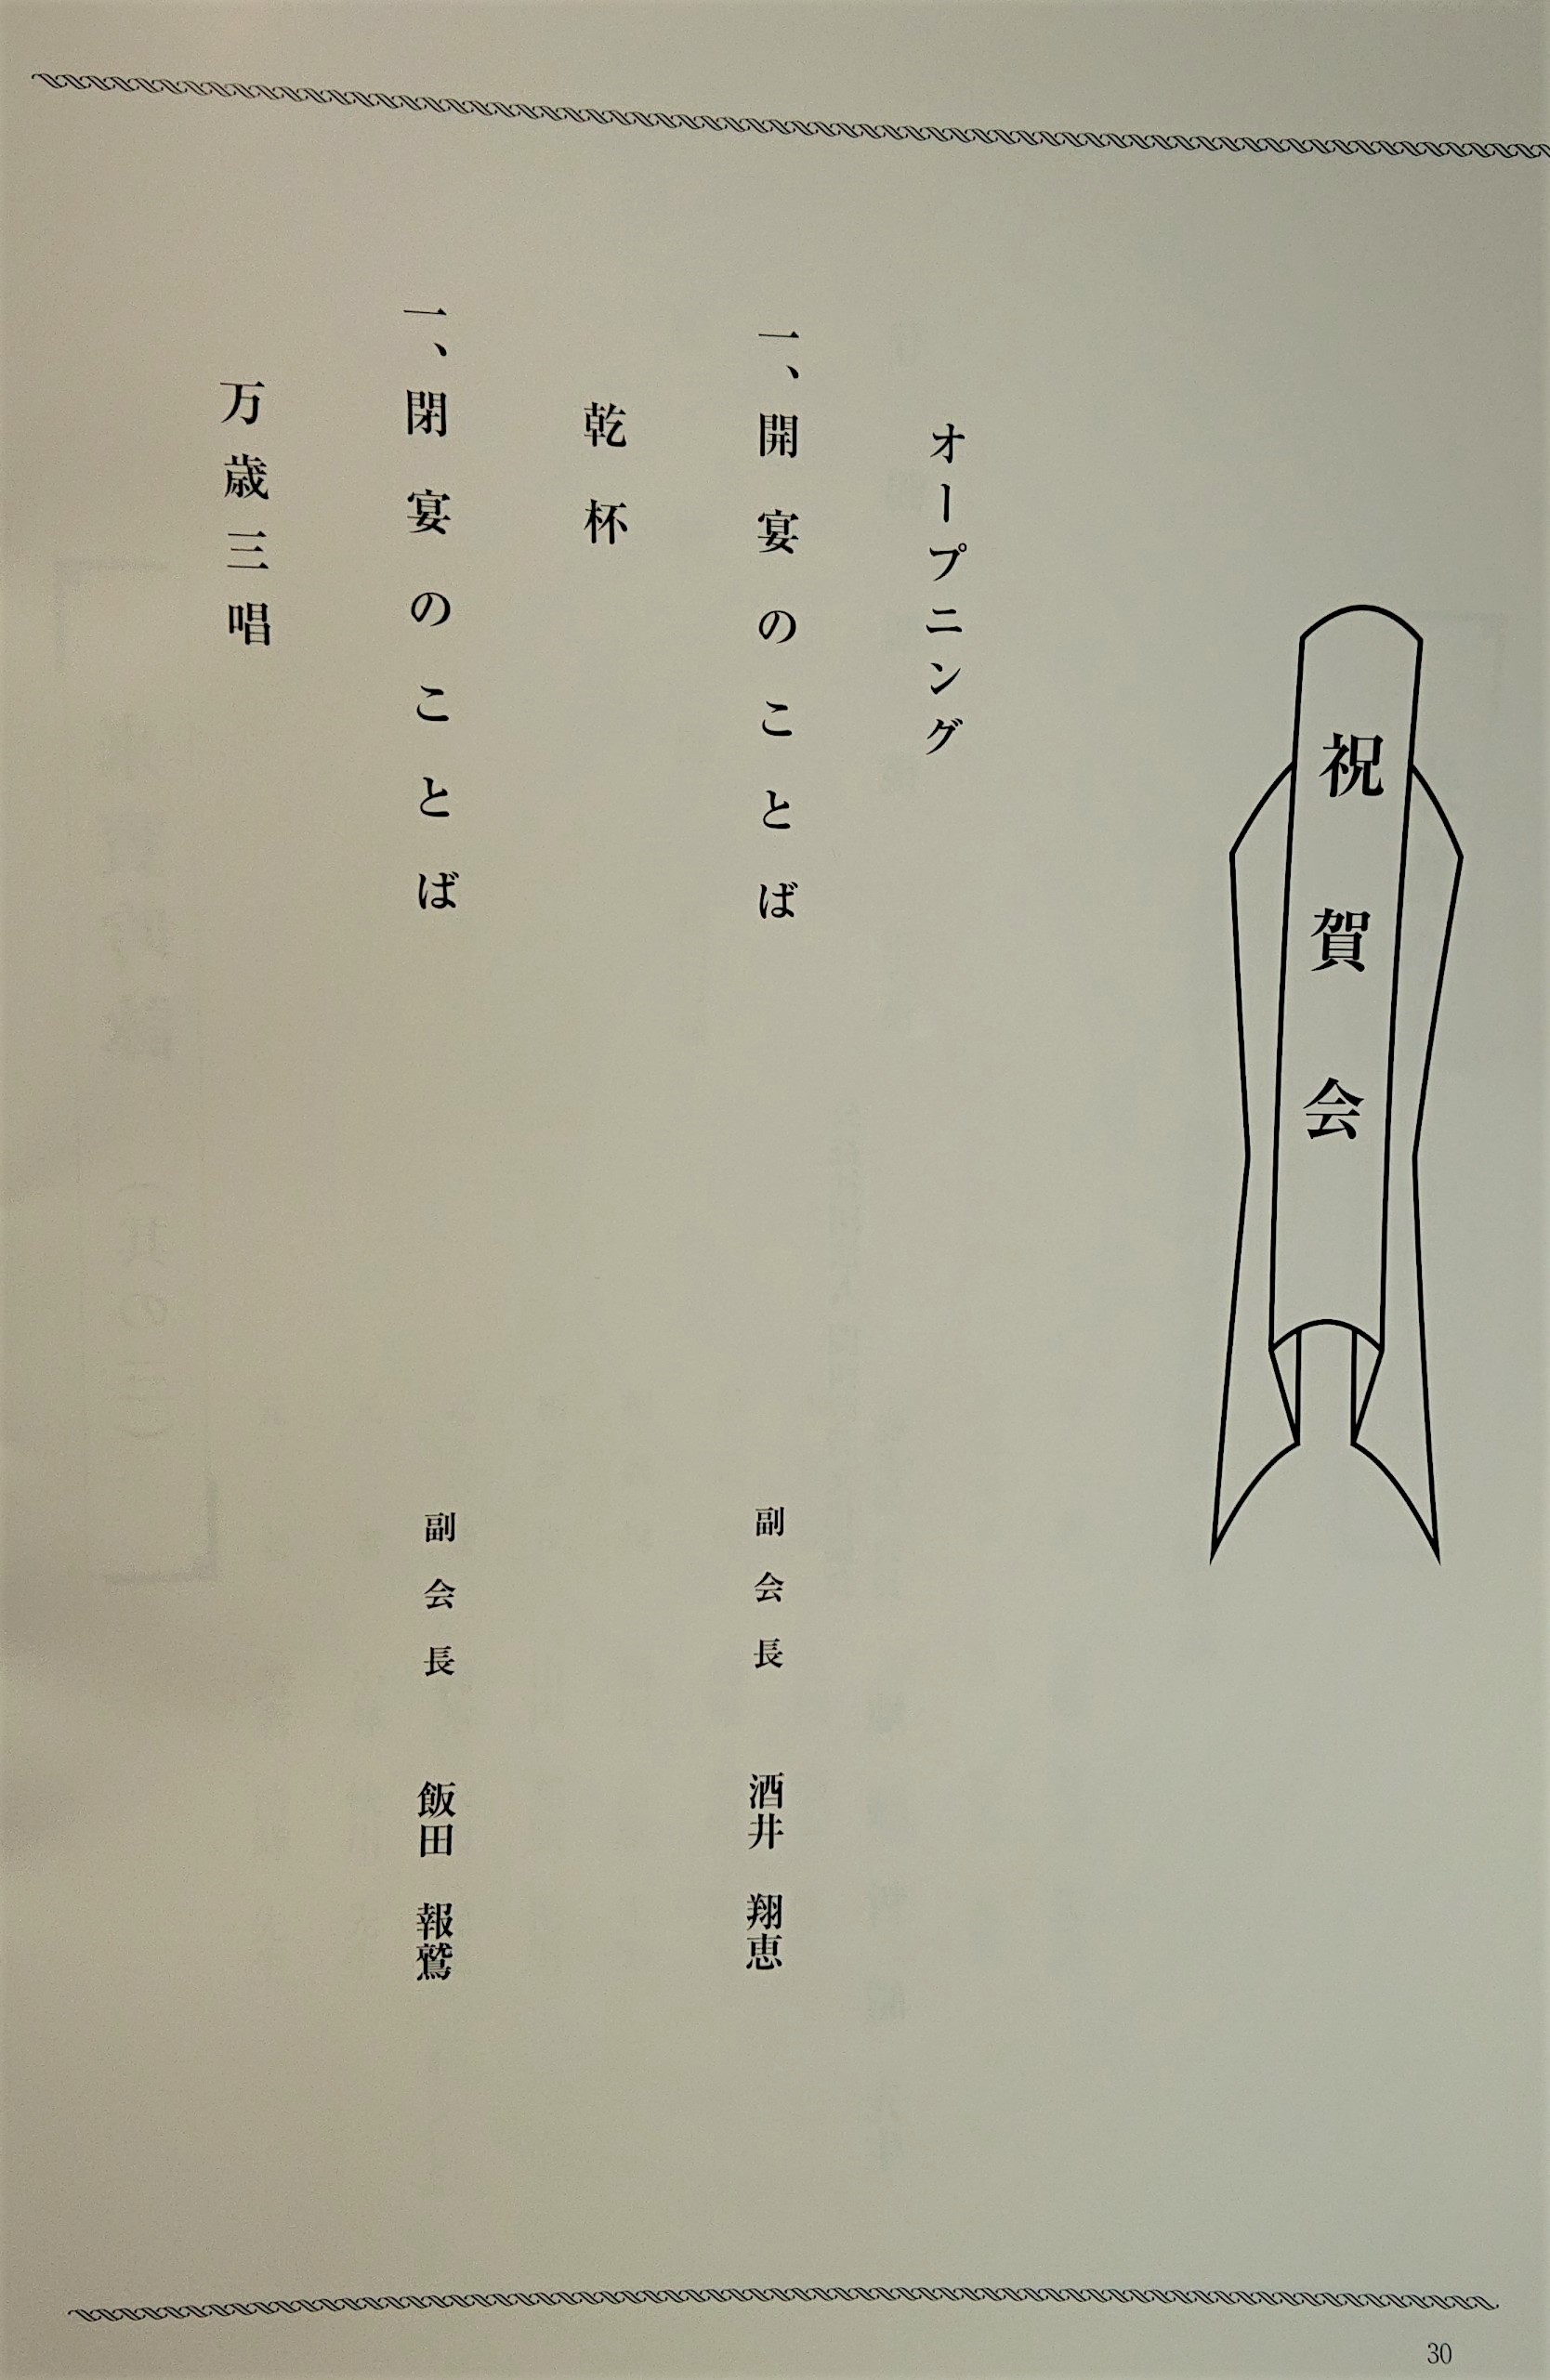 祝賀会
オープニング
一、開宴のことば　副会長　酒井　翔恵
乾杯
一、閉宴のことば　副会長　飯田　報鷲
万歳三唱
30